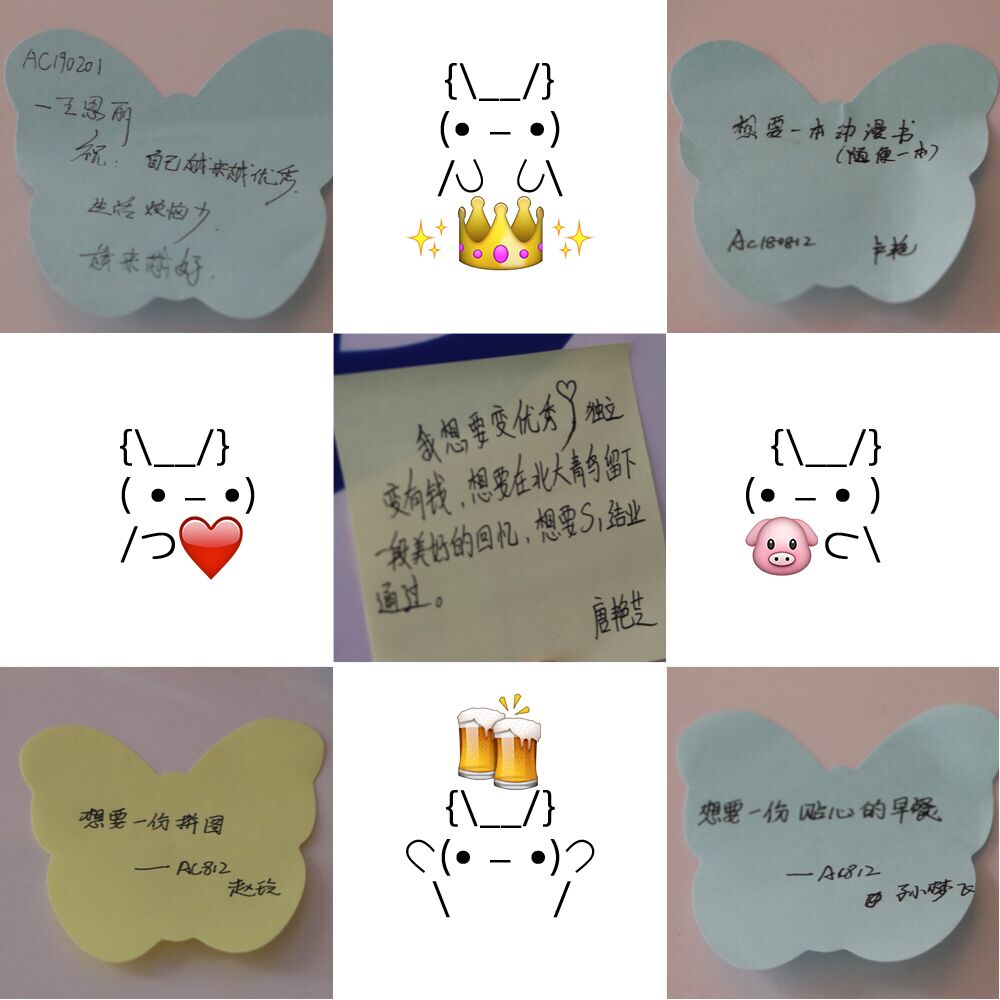 AC190201
一王思丽
祝：自己越来越优秀.
生活烦恼少.
越来越好.
{\__/}
(● — ●)
想要一本动漫书
(随便一本)
AC180812 卢艳
{\__/}
( ● — ●)
我想要变优秀 独立
变有钱，想要在北大青鸟留下
一段美好的回忆，想要S1结业
通过。
唐艳芝
{\__/}
(● — ● )
想要一份拼图
—AC812
赵玲
{\__/}
(● — ●)
想要一份贴心的早餐
—AC812
孙梦飞